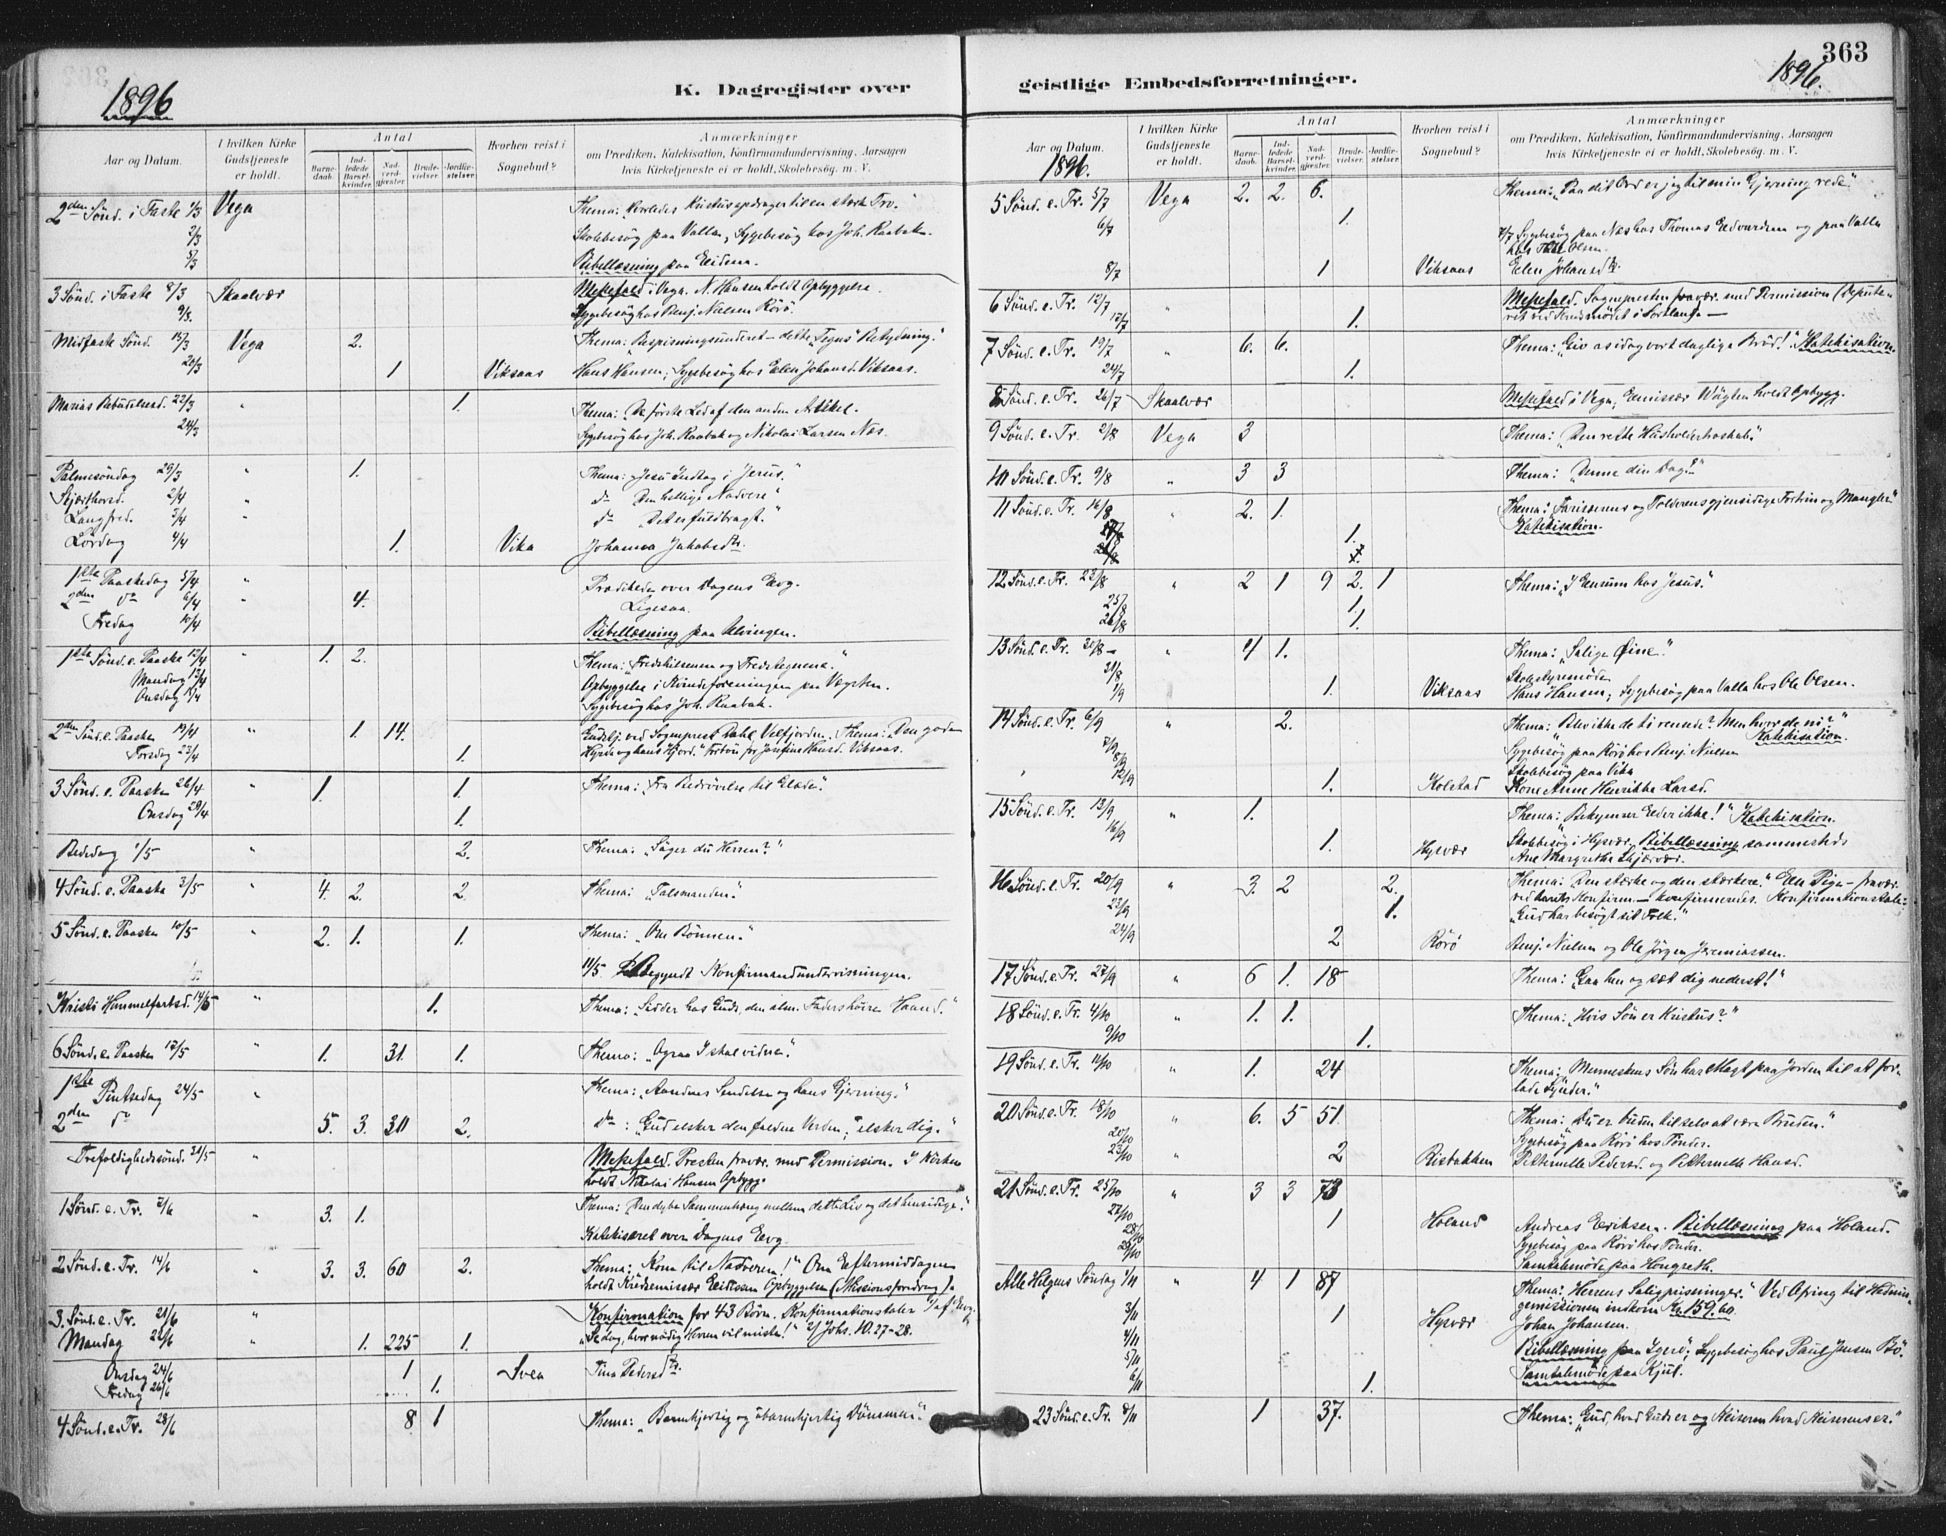 363
1896
1896.
K. Dagregister over geistlige Embedsforretninger.
Aar og Datum.
I hvilken Kirke Gudstjeneste er holdt.
Antal
Barne-daab.
Ind-ledede Barsel-kvinder.
Nad-verd-gjester.
Brude-vielser.
Jordfæ-stelser.
Hvorhen reist i Sognebud?
Anmærkninger
om Prædiken, Katekisation, Konfirmandundervisning, Aarsagen
hvis Kirketjeneste ei er holdt, Skolebesøg. m. V.
2den Sönd. i Faste 1/3 Vega Thema: "Hvorledes Kristus opdrager til en stærk Tro."
2/3 Skolebesøg paa Valla, Sygebesøg hos Joh. Raabak.
5/3 Bibellæsning paa Eidem.
3 Sönd. i Faste 8/3 Skaalvær Messefald i Vega. N. Hansen holdt Opbyggelse.
9/3. Sygebesøg hos Benj. Nielsen Rörö.
Midfaste Sönd. 15/3 Vega 2. Thema: "Bespisningsunderet – dette Tegns Betydning."
20/3 1 Viksaas Hans Hansen; Sygebesøg hos Elen Johansd. Viksaas.
Marias Bebudelsesd. 22/3 " 1. Thema: De første Led af den anden Artikel.
24/3 Sygebesøg hos Joh. Raabak og Nikolai Larsen Næs.
Palmesöndag 29/3 " 1. Thema: "Jesu Indtog i Jerus."
Skjærthorsd. 2/4 " do "Den hellige Nadvere"
Langfred. 3/4 " do "Det er fuldbragt."
Lördag 4/4 1. Vika Johanna Jakobsdtr.
1ste Paaskedag 5/4 " Prædikede over Dagens Evg.
2den do 6/4 " 4. Ligesaa.
Fredag 10/4 Bibellæsning paa Ulvingen.
1ste Sönd. e. Paaske 12/4 " 1. 2. Thema: "Fredshilsenen og Fredstegnene."
Mandag 13/4 Opbyggelse i Kvindeforeningen paa Vegsten.
Onsdag 15/4 Sygebesøg hos Joh. Raabak.
2den Sönd. e. Paasken 19/4 " 1 14. Gudstj. ved Sogneprest Dahl Velfjorden. Thema: "Den gode
Torsdag 23/4 1. Hyrde og hans Hjord."
3 Sönd. e. Paasken 26/4 " 1. 1. Thema: "Fra Bedrövelse til Glæde."
Onsdag 29/4 1.
Bededag 1/5 " 2. Thema: "Söger du Herren?"
4 Sönd. e. Paaske 3/5 " 4. 2. 2. Thema: "Talsmanden."
5 Sönd. e. Paasken 10/5 " 2. 1. 1. Thema: "Om Bönnen."
11/5 Begyndt Konfirmandundervisningen.
Kristi Himmelfartsd. 14/5 " 1. Thema: "Sidder hos Guds, den alm. Faders höire Haand."
6 Sönd. e. Paasken 17/5 " 1. 31. 1. Thema: "Ogsaa I skal vidne."
1ste Pintsedag 24/5 " Thema: "Aandens Sendelse og hans Gjerning."
2den do 5. 3. 30 2. do: "Gud elsker den faldne Verden, elsker dig."
Trefoldighedssönd. 31/5 " Messefald. Presten fravær. med Permission. I Kirken
holdt Nikolai Hansen Opbygg.
1 Sönd. e. Tr. 7/6 " 3. 1. Thema: "Den dybe Sammenhæng mellem dette Liv og det hinsidige."
Katekiseret over Dagens Evg.
2 Sönd. e. Tr. 14/6 " 3. 3. 60 2. Thema: "Kom til Nadveren!" Om Eftermiddagen
holdt Opbyggelse (Missionsforedrag).
3. Sönd. e. Tr. 21/6 " Konfirmation for 43 Börn. Konfirmationstaler
Mandag 22/6 1. 225 1. Joh. 10. 27-28.
Onsdag 24/6 1 Svea Tina Pedersdtr.
Fredag 26/6 1.
4 Sönd. e. Tr. 28/6 8 1 Thema: "Barmhjertig og ubarmhjertig Dömmen."
Aar og Datum. 1896.
I hvilken Kirke Gudstjeneste er holdt.
Antal
Barne-daab.
Ind-ledede Barsel-kvinder.
Nad-verd-gjester.
Brude-vielser.
Jordfæ-stelser.
Hvorhen reist i Sognebud?
Anmærkninger
om Prædiken, Katekisation, Konfirmandundervisning, Aarsagen
hvis Kirketjeneste ei er holdt, Skolebesøg. m. V.
5 Sönd. e. Tr. 5/7 Vega 2. 2. 6. Thema: "Paa dit Ord er jeg til min Gjerning rede."
6/7 1. 7/7 Sygebesøg paa Næs hos Thomas Edvardsen og paa Valla
hos Olsen.
8/7 1 Viksaas Elen Johansdtr.
6 Sönd. e. Tr. 12/7 " Messefald. Sognepresten fravær. med Permission
1.
7 Sönd. e. Tr. 19/7 " 6. 6. Thema: "Giv os idag vort daglige Bröd!" Katekisation.
24/7 1.
8 Sönd. e. Tr. 26/7 Skaalvær Messefald i Vega, Emissær holdt Opbygg.
9 Sönd. e. Tr. 2/8 Vega 3 Thema: "Den rette Husholderskab."
10 Sönd. e. Tr. 9/8 " 3 3 Thema: "Denne din Dag!"
11 Sönd. e. Tr. 16/8 " 2. 1. Thema: "Farisæerens og Tolderens gjensidige Fortrin og Mangler"
1. Katekisation.
12 Sönd. e. Tr. 23/8 " 2 1 9 2. 1 Thema: "I Enrum hos Jesus."
25/8 1.
26/8 1.
13 Sönd. e. Tr. 30/8 " 4 1. Thema: "Salige Öine."
31/8 Skolestyremöde
1/9 1. Viksaas Hans Hansen; Sygebesøg paa Valla hos Ole Olsen.
14 Sönd. e. Tr. 6/9 " 2. Thema: "Blev ikke de ti rensede? Men hvor de ni?" Katekisation.
7/9 Sygebesøg paa Rörö hos Benj. Nielsen
8/9 Skolebesøg paa Vika
12/9 1. Kolstad Kone Anne Henrikke Larsd.
15 Sönd. e. Tr. 13/9 " 1. Thema: "Bekymrer Eder ikke!" Katekisation.
16/9 1. Hysvær Skolebesøg i Hysvær, Bibellæsning sammesteds
Ane Margrethe Skjærvær.
16 Sönd. e. Tr. 20/9 " 3. 2 2. Thema: "Den stærke og den stærkere." Een Pige – fravær.
23/9 1. konfirmeredes. Konfirmationstale:
"Gud har besøgt sit Folk."
24/9 2 Rörö Benj. Nielsen og Ole Jörgen Jeremiassen.
17 Sönd. e. Tr. 27/9 " 6 1. 18 Thema: "Gaa hen og sæt dig nederst!"
18 Sönd. e. Tr. 4/10 " 1. 1. Thema: "Hvis Sön er Kristus?"
9/10 1.
19 Sönd. e. Tr. 11/10 " 1. 24 Thema: "Menneskens Sön har Magt paa Jorden til at for-
lade Synder."
20 Sönd. e. Tr. 18/10 " 6. 5 51. Thema: "Du er buden til selv at være Bruden."
20/10 Sygebesøg paa Rörö hos Tönder.
23/10 " 2 Risbakken Petternelle Pedersd. og Petternelle Hansd.
21 Sönd. e. Tr. 25/10 " 3 3 73
27/10 1 Holand Andreas Eriksen. Bibellæsning paa Holand.
28/10 Sygebesøg paa Rörö hos Tönder.
29/10 Samtalemöde paa Hongseth.
Alle Helgens Söndag 1/11 " 4 1 87 Thema: "Herrens Saligprisninger." Ved Ofring til Hednin-
gemissionen indkom Kr. 159,60.
3/11 1 Hysvær Johan Johansen.
4/11
5/11 Bibellæsning paa Igerö; Sygebesøg hos Paul Jensen Bö.
6/11 1. Samtalemöde paa Kjul.
23 Sönd. e. Tr. 8/11 1 37. Thema: "Gud, hvad Guds er og Keiseren hvad Keiserens er."